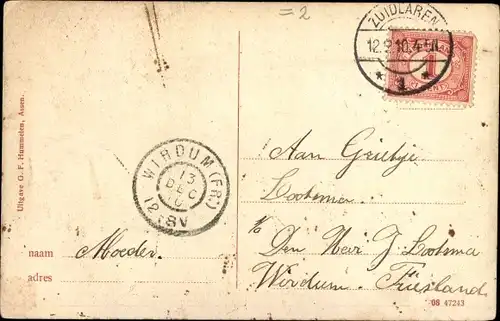 =2
ZUIDLAREN
12.9.10.4-5N
* 1 *
1
WIRDUM (FR:)
13
DEC
10
12-8V
Uitgave G. F. Hummelen, Assen.
Aan Grietje
Lootsma
%
Den Heer J. Lootsma
Wirdum. Friesland
naam Moeder.
adres
08 47243